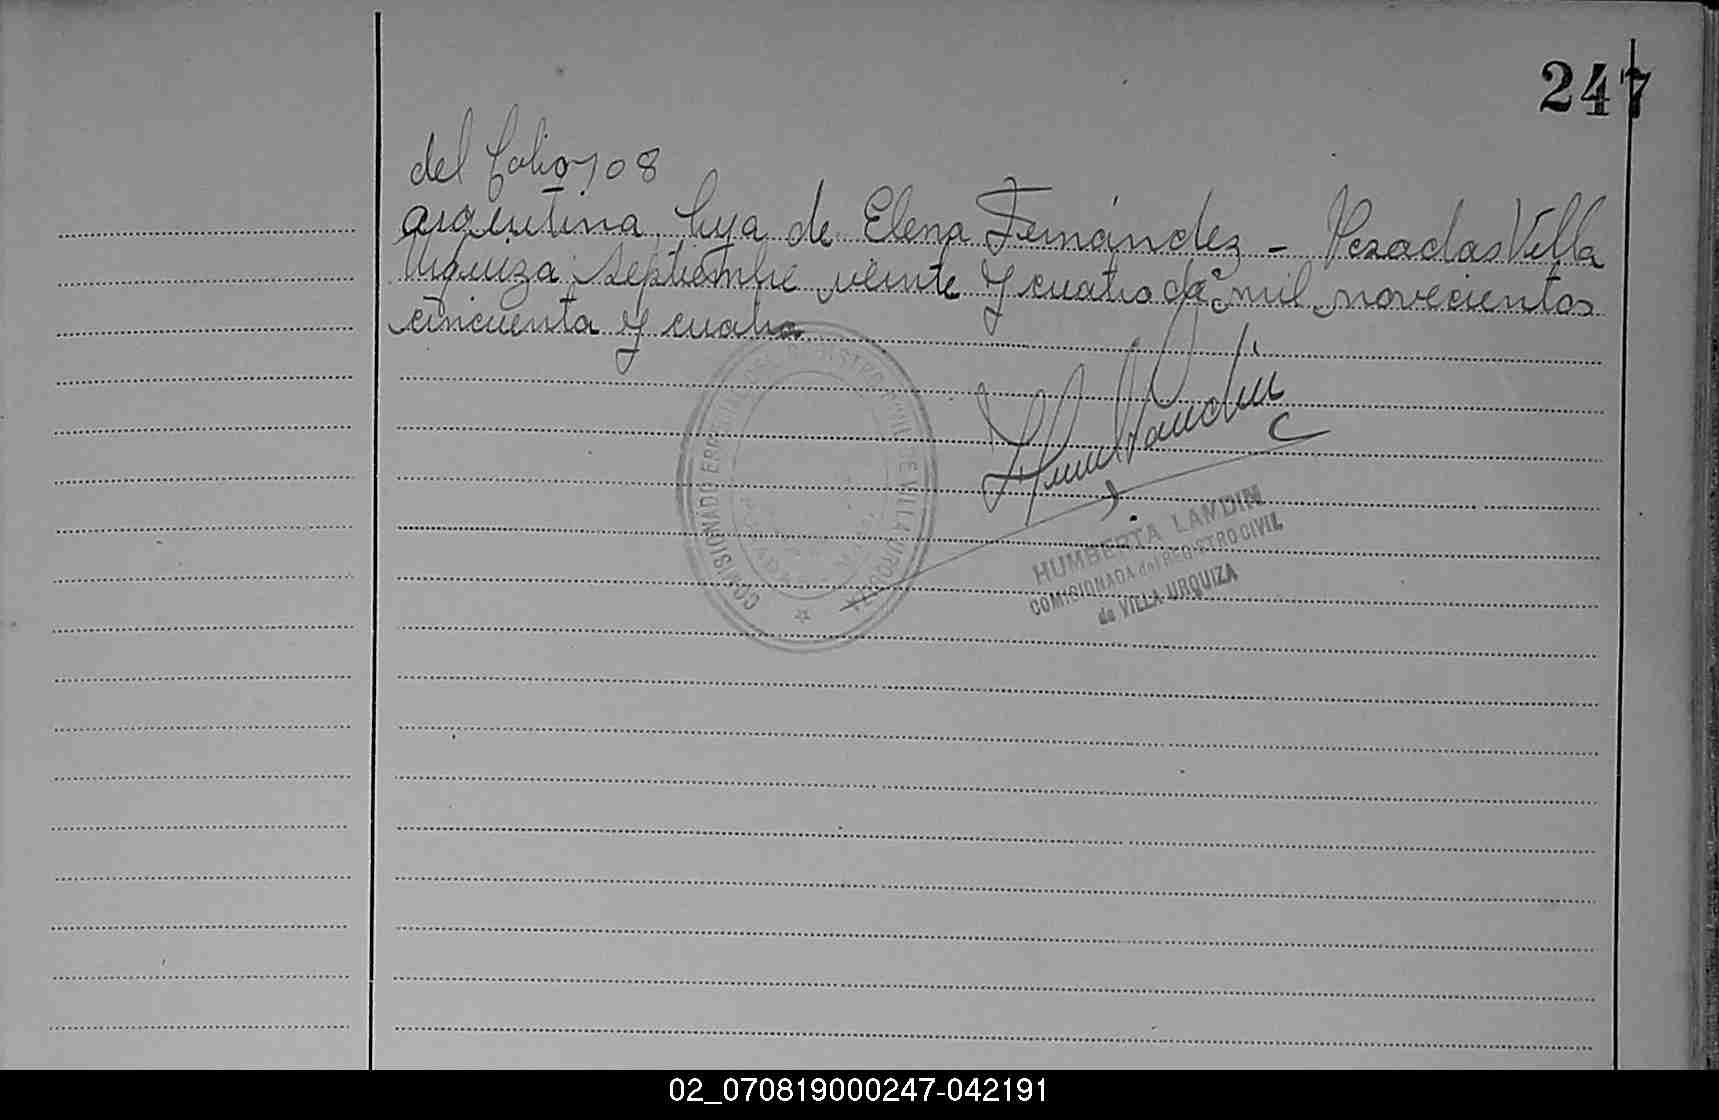 247
del folio 108
argentina, hija de Elena Fernández - Posadas Villa
Urquiza Septiembre veinte y cuatro de mil novecientos
cincuenta y cuatro
COMISIONADO DEL REGISTRO CIVIL DE VILLA URQUIZA
HUMBERTA LANDIN
COMISIONADA del REGISTRO CIVIL
de VILLA URQUIZA
02_070819000247-042191